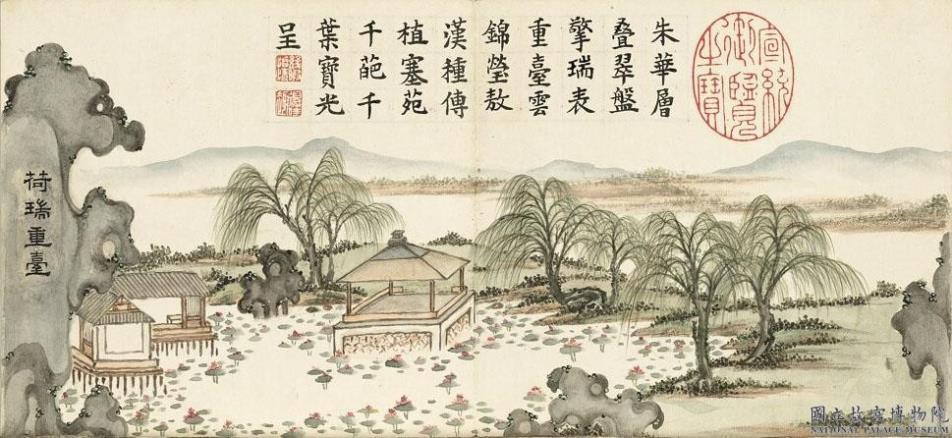 宣統
御覽
之寶
朱華層
叠翠盤
擎瑞表
重臺雲
錦瑩敖
漢種傳
植塞苑
千葩千
葉寶光
呈
荷瑞重臺
國立故宮博物院
NATIONAL PALACE MUSEUM